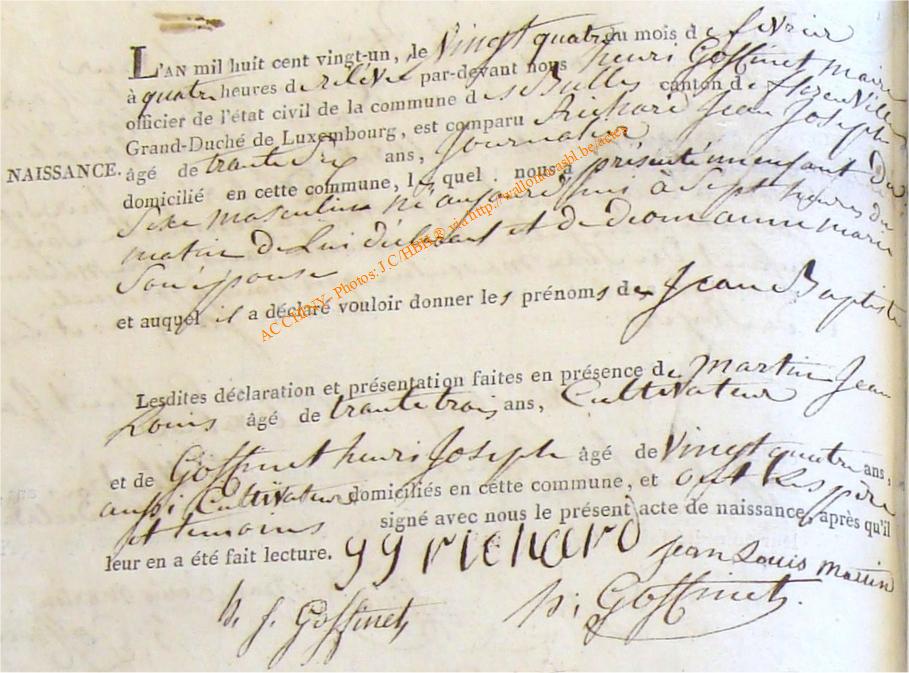 L'AN mil huit cent vingt-un, le Vingt quatre du mois de fevrier
à quatre heures de relévé par-devant nous henri Goffinet maire
officier de l'état civil de la commune des Bulles canton de florenville
Grand-Duché de Luxembourg, est comparu Richard Jean Joseph
NAISSANCE. âgé de trante Six ans, Journalier
domicilié en cette commune, lequel nous a présenté un enfant du
Sexe masculin né aujourd'hui à Sept heures du
matin de Lui déclarant et de anne marie
Son épouse
et auquel il a déclaré vouloir donner les prénoms de Jean Baptiste
ACCHBIV - Photos: J.C/HBK® via http://wallonica
Lesdites déclaration et présentation faites en présence de Martin Jean
Louis âgé de trante trois ans, Cultivateur
et de Goffinet henri Joseph âgé de Vingt quatre ans,
aussi Cultivateur domiciliés en cette commune, et ont Les père
et temoins signé avec nous le présent acte de naissance, après qu'il
leur en a été fait lecture.
richard
Jean Louis Martin
h. j. Goffinet
h: Goffinet.